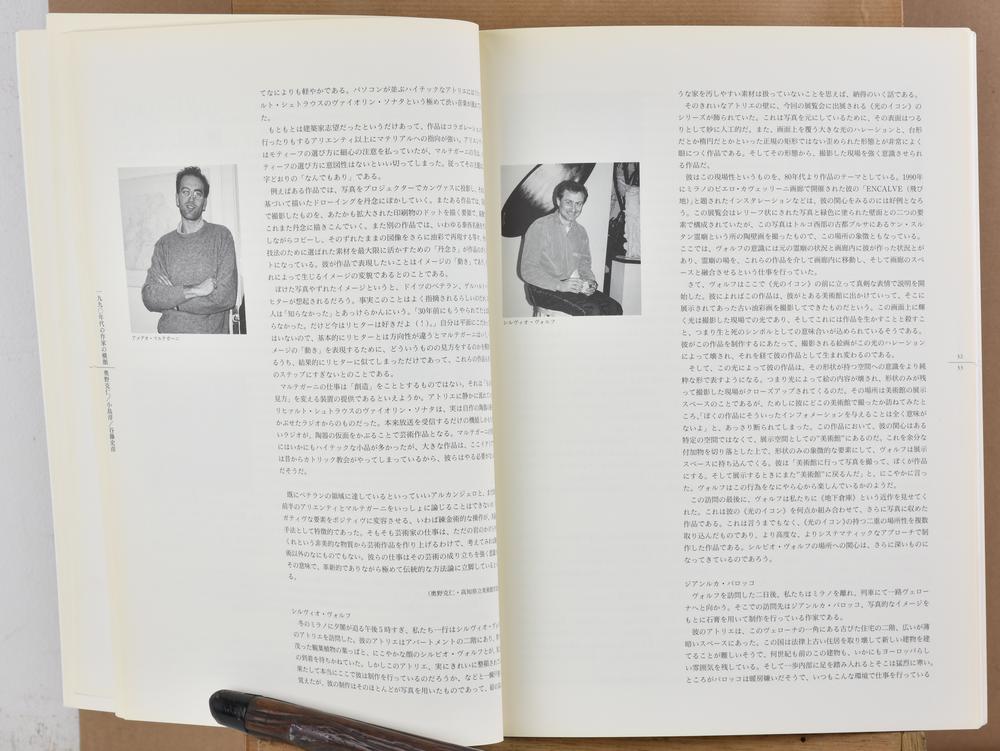 てなによりも軽やかである。パソコンが並ぶハイテックなアトリエには
ルト・シュトラウスのヴァイオリン・ソナタという極めて渋い音楽が流れ
た。
もともとは建築家志望だったというだけあって、作品はコラボレーション
行ったりもするアリエンティ以上にマテリアルへの指向が強い。アリエンティ
はモティーフの選び方に細心の注意を払っていたが、マルテガーニの作品
ティーフの選び方に意図性はないといい切ってしまった。従ってその主題
字どおりの「なんでもあり」である。
例えばある作品では、写真をプロジェクターでカンヴァスに投影し、それ
基づいて描いたドローイングを丹念にぼかしていく。またある作品では、
で撮影したものを、あたかも拡大された印刷物のドットを描く要領で、
これまた丹念に描きこんでいく。また別の作品では、いわゆる
しながらコピーし、そのずれたままの図像をさらに油彩で再現する等々、
技法のために選ばれた素材を最大限に活かすための「丹念さ」が作品の
トになっている。彼が作品で表現したいことはイメージの「動き」であり、
れによって生じるイメージの変貌であるとのことである。
ぼけた写真やずれたイメージというと、ドイツのベテラン、ゲルハルト・
ヒターが想起されるだろう。事実このことはよく指摘されるらしいのだが、
人は「知らなかった」とあっけらかんにいう。「30年前にもうやられてた
らなかった。だけど今はリヒターは好きだよ(！)。」自分は平面にこだ
はいないので、基本的にリヒターとは方向性が違うとマルテガーニはいい、
メージの「動き」を表現するために、どういうものの見方をするのかを
るうち、結果的にリヒターに似てしまっただけであって、これらの作品も
のステップにすぎないとのことである。
マルテガーニの仕事は「創造」をことすするものではない。それは「
見方」を変える装置の提供であるといえようか。アトリエに静かに流れて
リヒァルト・シュトラウスのヴァイオリン・ソナタは、実は自作の陶器の
かぶせたラジオからのものだった。本来放送を受信するだけの機能しか
いラジオが、陶器の仮面をかぶることで芸術作品となる。マルテガーニの
にはいかにもハイテックな小品が多かったが、大きな作品は、ここイタリア
は昔からカトリック教会がやってしまっているから、彼らはやる必要がな
だそうだ。
既にベテランの領域に達しているといっていいアルカンジェロと、まだ
前半のアリエンティとマルテガーニをいっしょに論じることはできない
ガティヴな要素をポジティヴに変容させる、いわば錬金術的な操作が、
手法として特徴的であった。そもそも芸術家の仕事は、ただの岩のか
くれという非美的な物質から芸術作品を作り上げるわけで、考えてみれば
術以外のなにものでもない。彼らの仕事はその芸術の成り立ちを強く意識
その意味で、革新的でありながら極めて伝統的な方法論に立脚している
る。
(奥野克仁・高知県立美術館
シルヴィオ・ヴォルフ
冬のミラノに夕闇が迫る午後5時すぎ、私たち一行はシルヴィオ・ヴォ
のアトリエを訪問した。彼のアトリエはアパートメントの二階にあり、
茂った観葉植物の葉っぱと、にこやかな顔のシルビオ・ヴォルフとが、
の到着を待ちかねていた。しかしこのアトリエ、実にきれいに整頓され
果たして本当にここで彼は制作を行っているのだろうか、などと一瞬
覚えたが、彼の制作はそのほとんどが写真を用いたものであって、
アメデオ・マルテガーニ
一九九〇年代の作家の横顔
奥野克仁／小島淳／谷藤史彦
うな家を汚しやすい素材は扱っていないことを思えば、納得のいく話である。
そのきれいなアトリエの壁に、今回の展覧会に出展される《光のイコン》の
シリーズが飾られていた。これは写真を元にしているために、その表面はつる
りとして妙に人工的だ。また、画面上を覆う大きな光のハレーションと、台形
だとか楕円だとかといった正規の矩形ではない歪められた形態とが非常によく
眼につく作品である。そしてその形態から、撮影した現場を強く意識させられ
る作品だ。
彼はこの現場性というものを、80年代より作品のテーマとしている。1990年
にミラノのピエロ・カヴェッリーニ画廊で開催された彼の「ENCALVE（飛び
地）」と題されたインスタレーションなどは、彼の関心をみるには好例となろ
う。この展覧会はレリーフ状にされた写真と緑色に塗られた壁面との二つの要
素で構成されていたが、この写真はトルコ西部の古都ブルサにあるケン・スル
タン霊廟という所の陶壁画を撮ったもので、この場所の象徴ともなっている。
ここでは、ヴォルフの意識には元の霊廟の状況と画廊内に彼が作った状況とが
あり、霊廟の場を、これらの作品を介して画廊内に移動し、そして画廊のスペ
ースと融合させるという仕事を行っていた。
さて、ヴォルフはここで《光のイコン》の前に立って真剣な表情で説明を開
始した。彼によればこの作品は、彼がとある美術館に出かけていって、そこに
展示されてあった古い油彩画を撮影してできたものだという。この画面上に輝
く光は撮影した現場での光であり、そしてこれには作品を生かすことと殺すこ
と、つまり生と死のシンボルとしての意味合いが込められているそうである。
彼がこの作品を制作するにあたって、撮影される絵画がこの光のハレーション
によって壊され、それを経て彼の作品として生まれ変わるのである。
そして、この光によって彼の作品は、その形状が持つ空間への意識をより純
粋な形で表すようになる。つまり光によって絵の内容が壊され、形状のみが残
って撮影した現場がクローズアップされてくるのだ。その場所は美術館の展示
スペースのことであるが、ためしに彼にどこの美術館で撮ったか訪ねてみたと
ころ、「ぼくの作品にそういったインフォメーションを与えることは全く意味が
ないよ」と、あっさり断られてしまった。この作品において、彼の関心はある
特定の空間ではなくて、展示空間としての"美術館"にあるのだ。これを余分な
付加物を切り落とした上で、形状のみの象徴的な要素にして、ヴォルフは展示
スペースに持ち込んでくる。彼は「美術館に行って写真を撮って、ぼくが作品
にする。そして展示するときにまた"美術館"に戻るんだ」と、にこやかに言っ
た。ヴォルフはこの行為をなにやら心から楽しんでいるかのようだ。
この訪問の最後に、ヴォルフは私たちに《地下倉庫》という近作を見せてく
れた。これは彼の《光のイコン》を何点か組み合わせて、さらに写真に収めた
作品である。これは言うまでもなく、《光のイコン》の持つ二重の場所性を複数
取り込んだものであり、より高度な、よりシステマティックなアプローチで制
作した作品である。シルビオ・ヴォルフの場所への関心は、さらに深いものに
なってきているのであろう。
ジアンルカ・バロッコ
ヴォルフを訪問した二日後、私たちはミラノを離れ、列車にて一路ヴェロー
ナへと向かう。そこでの訪問先はジアンルカ・バロッコ、写真的なイメージを
もとに石膏を用いて制作を行っている作家である。
彼のアトリエは、このヴェローナの一角にある古びた住宅の二階、広いが薄
暗いスペースにあった。この国は法律上古い住居を取り壊して新しい建物を建
てることが難しいそうで、何世紀も前のこの建物も、いかにもヨーロッパらし
い雰囲気を残している。そして一歩内部に足を踏み入れるとそこは猛烈に寒い。
ところがバロッコは暖房嫌いだそうで、いつもこんな環境で仕事を行っている
シルヴィオ・ヴォルフ
32
33